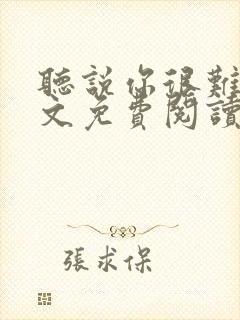 聽說你很難
文免費閱讀
張求保